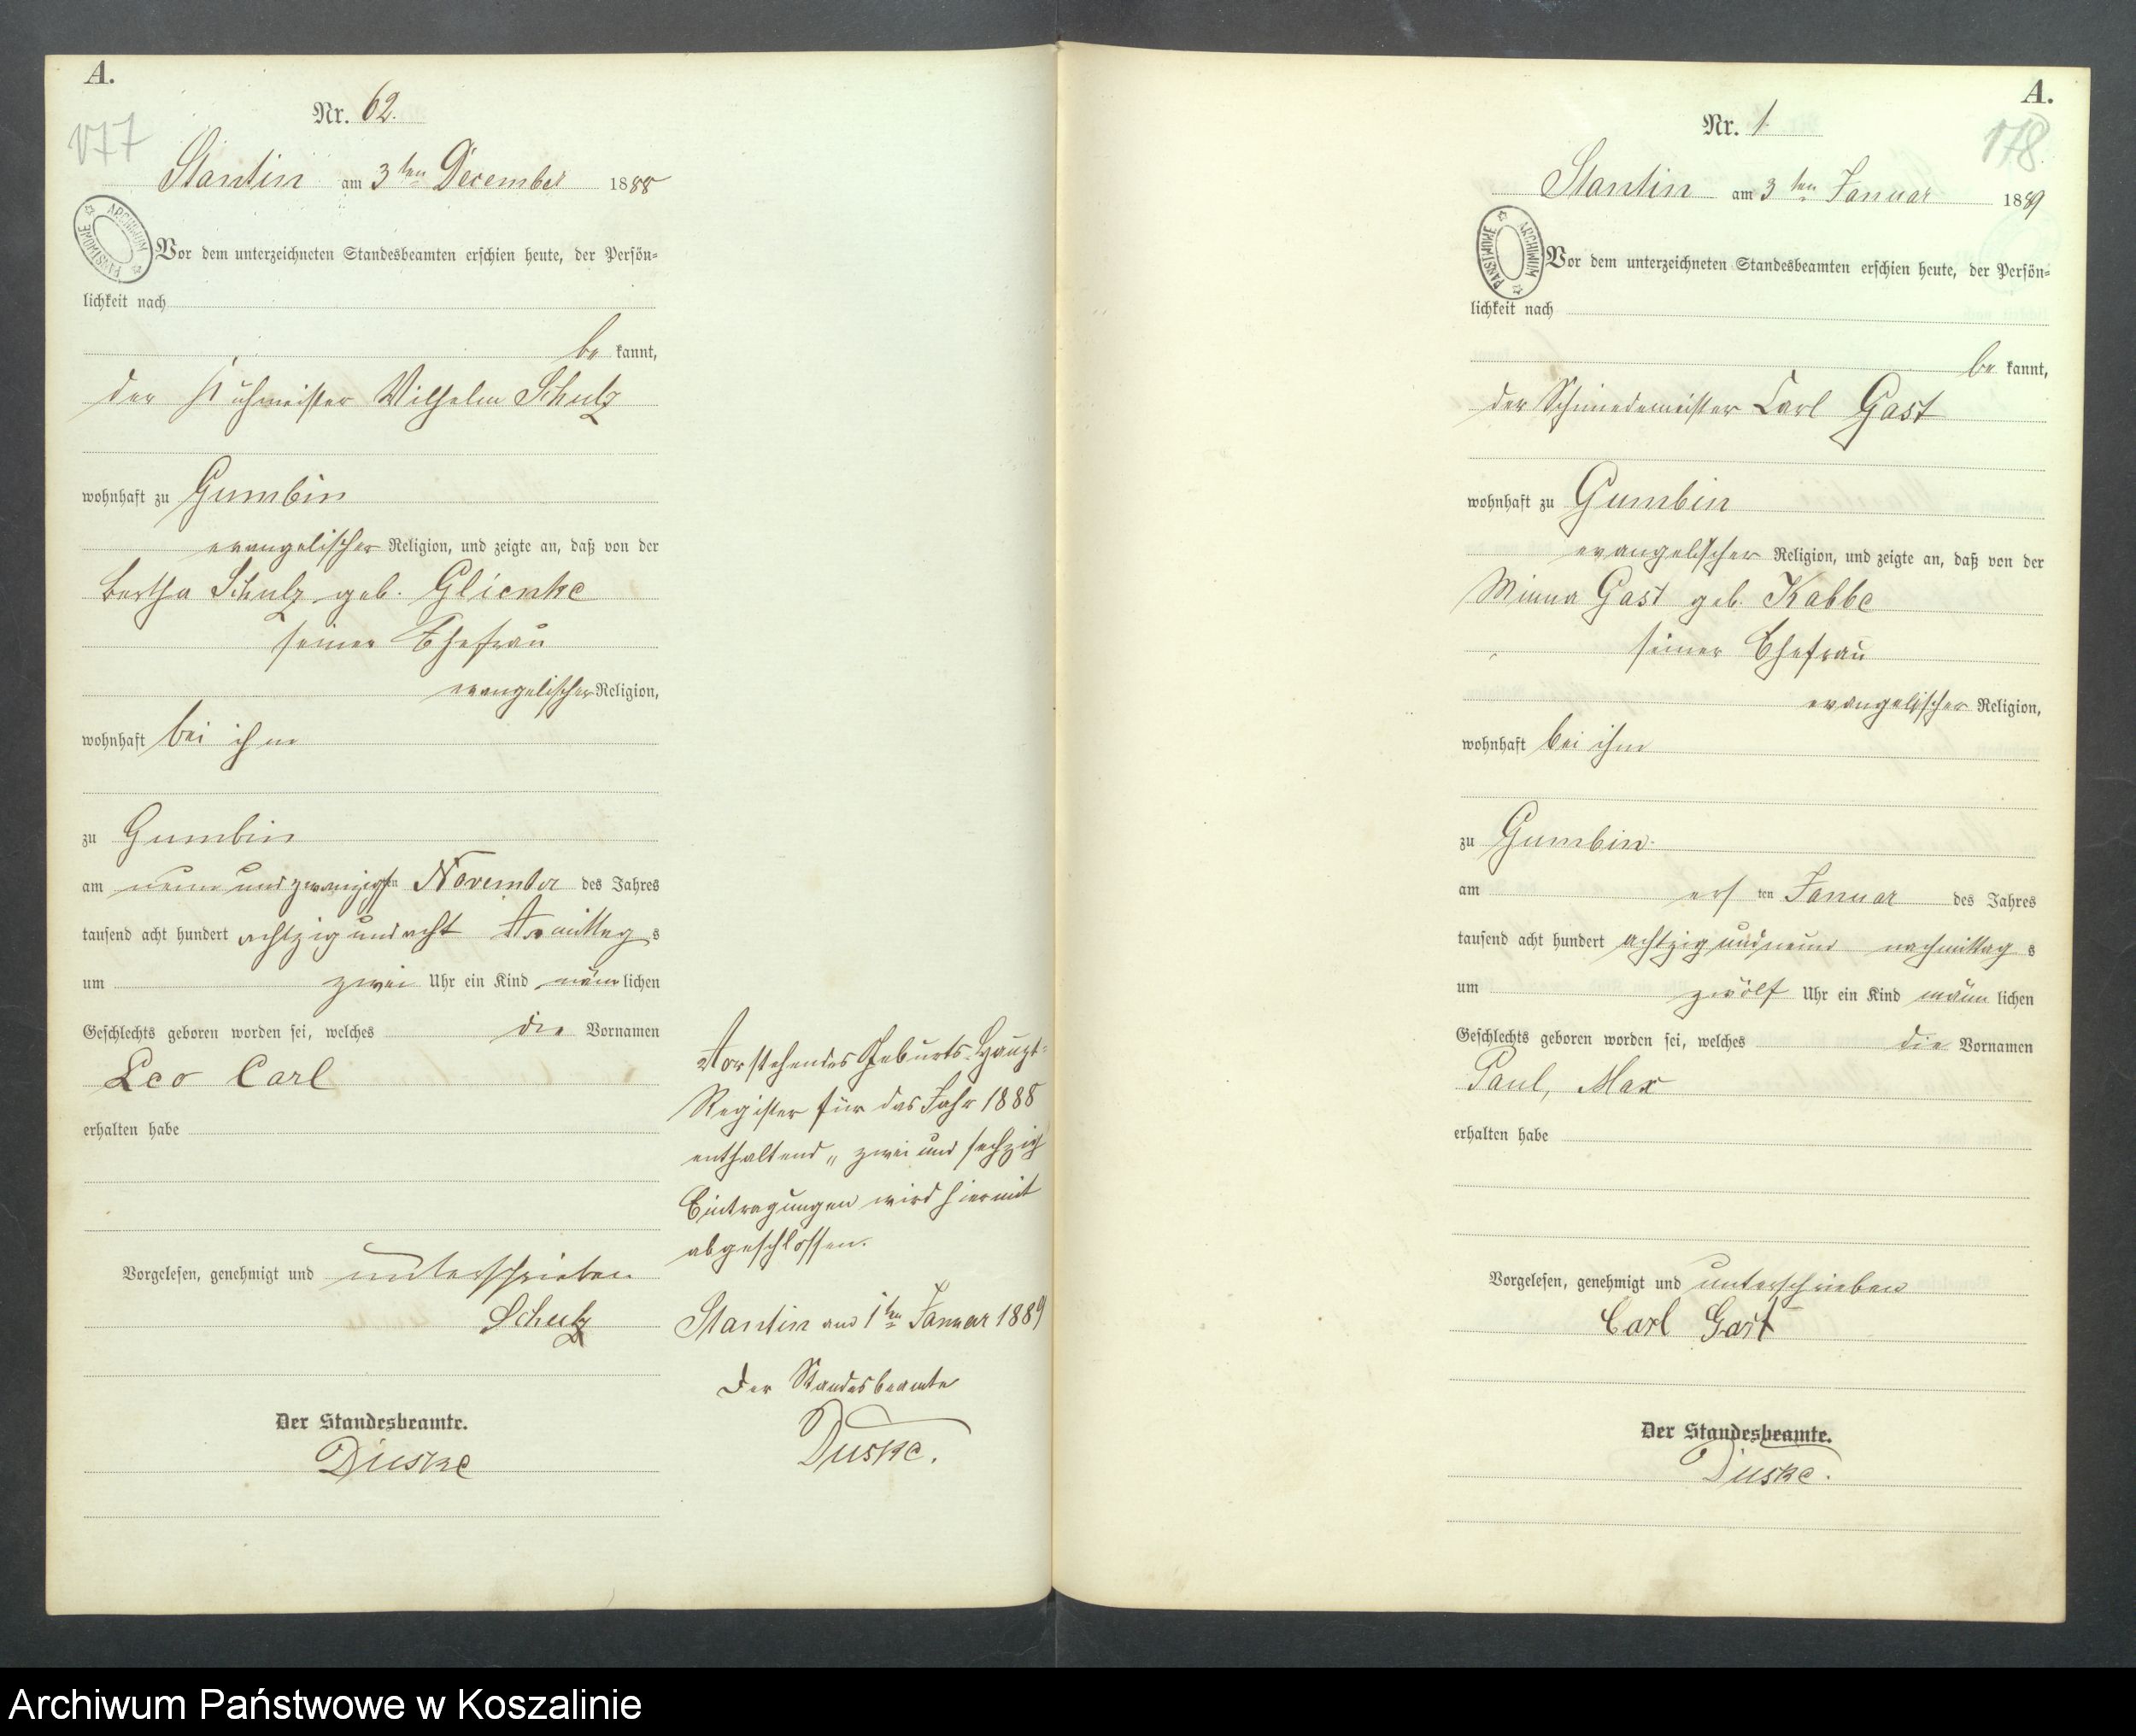 A.
Nr. 62.
177
Stantin am 3ten December 1888
ARCHIWUM PAŃSTWOWE
Vor dem unterzeichneten Standesbeamten erschien heute, der Persön-
lichkeit nach
be kannt,
der Kuhmeister Wilhelm Schulz
wohnhaft zu Gumbin
evangelischer Religion, und zeigte an, daß von der
Bertha Schulz geb. Glienke
seiner Ehefrau
evangelischer Religion,
wohnhaft bei ihm
zu Gumbin
am neun und zwanzigsten November des Jahres
tausend acht hundert achtzig und acht Vormittag s
um zwei Uhr ein Kind männ lichen
Geschlechts geboren worden sei, welches die Vornamen
Leo Carl
erhalten habe
Vorgelesen, genehmigt und unterschrieben
Schulz
Der Standesbeamte.
Duske
Vorstehendes Geburts-Haupt-
Register für das Jahr 1888
enthaltend „ zwei und sechzig
Eintragungen wird hiermit
abgeschlossen.
Stantin am 1ten Januar 1889
Der Standesbeamte
Duske.
A.
Nr. 1.
178.
Stantin am 3ten Januar 1889
ARCHIWUM PAŃSTWOWE
Vor dem unterzeichneten Standesbeamten erschien heute, der Persön-
lichkeit nach
be kannt,
der Schmiedemeister Carl Gast
wohnhaft zu Gumbin
evangelischer Religion, und zeigte an, daß von der
Minna Gast geb. Kabbe
seiner Ehefrau
evangelischer Religion,
wohnhaft bei ihm
zu Gumbin.
am ers ten Januar des Jahres
tausend acht hundert achtzig und neun nachmittag s
um zwölf Uhr ein Kind männ lichen
Geschlechts geboren worden sei, welches die Vornamen
Paul, Max
erhalten habe
Vorgelesen, genehmigt und unterschrieben
Carl Gast
Der Standesbeamte.
Duske.
Archiwum Państwowe w Koszalinie